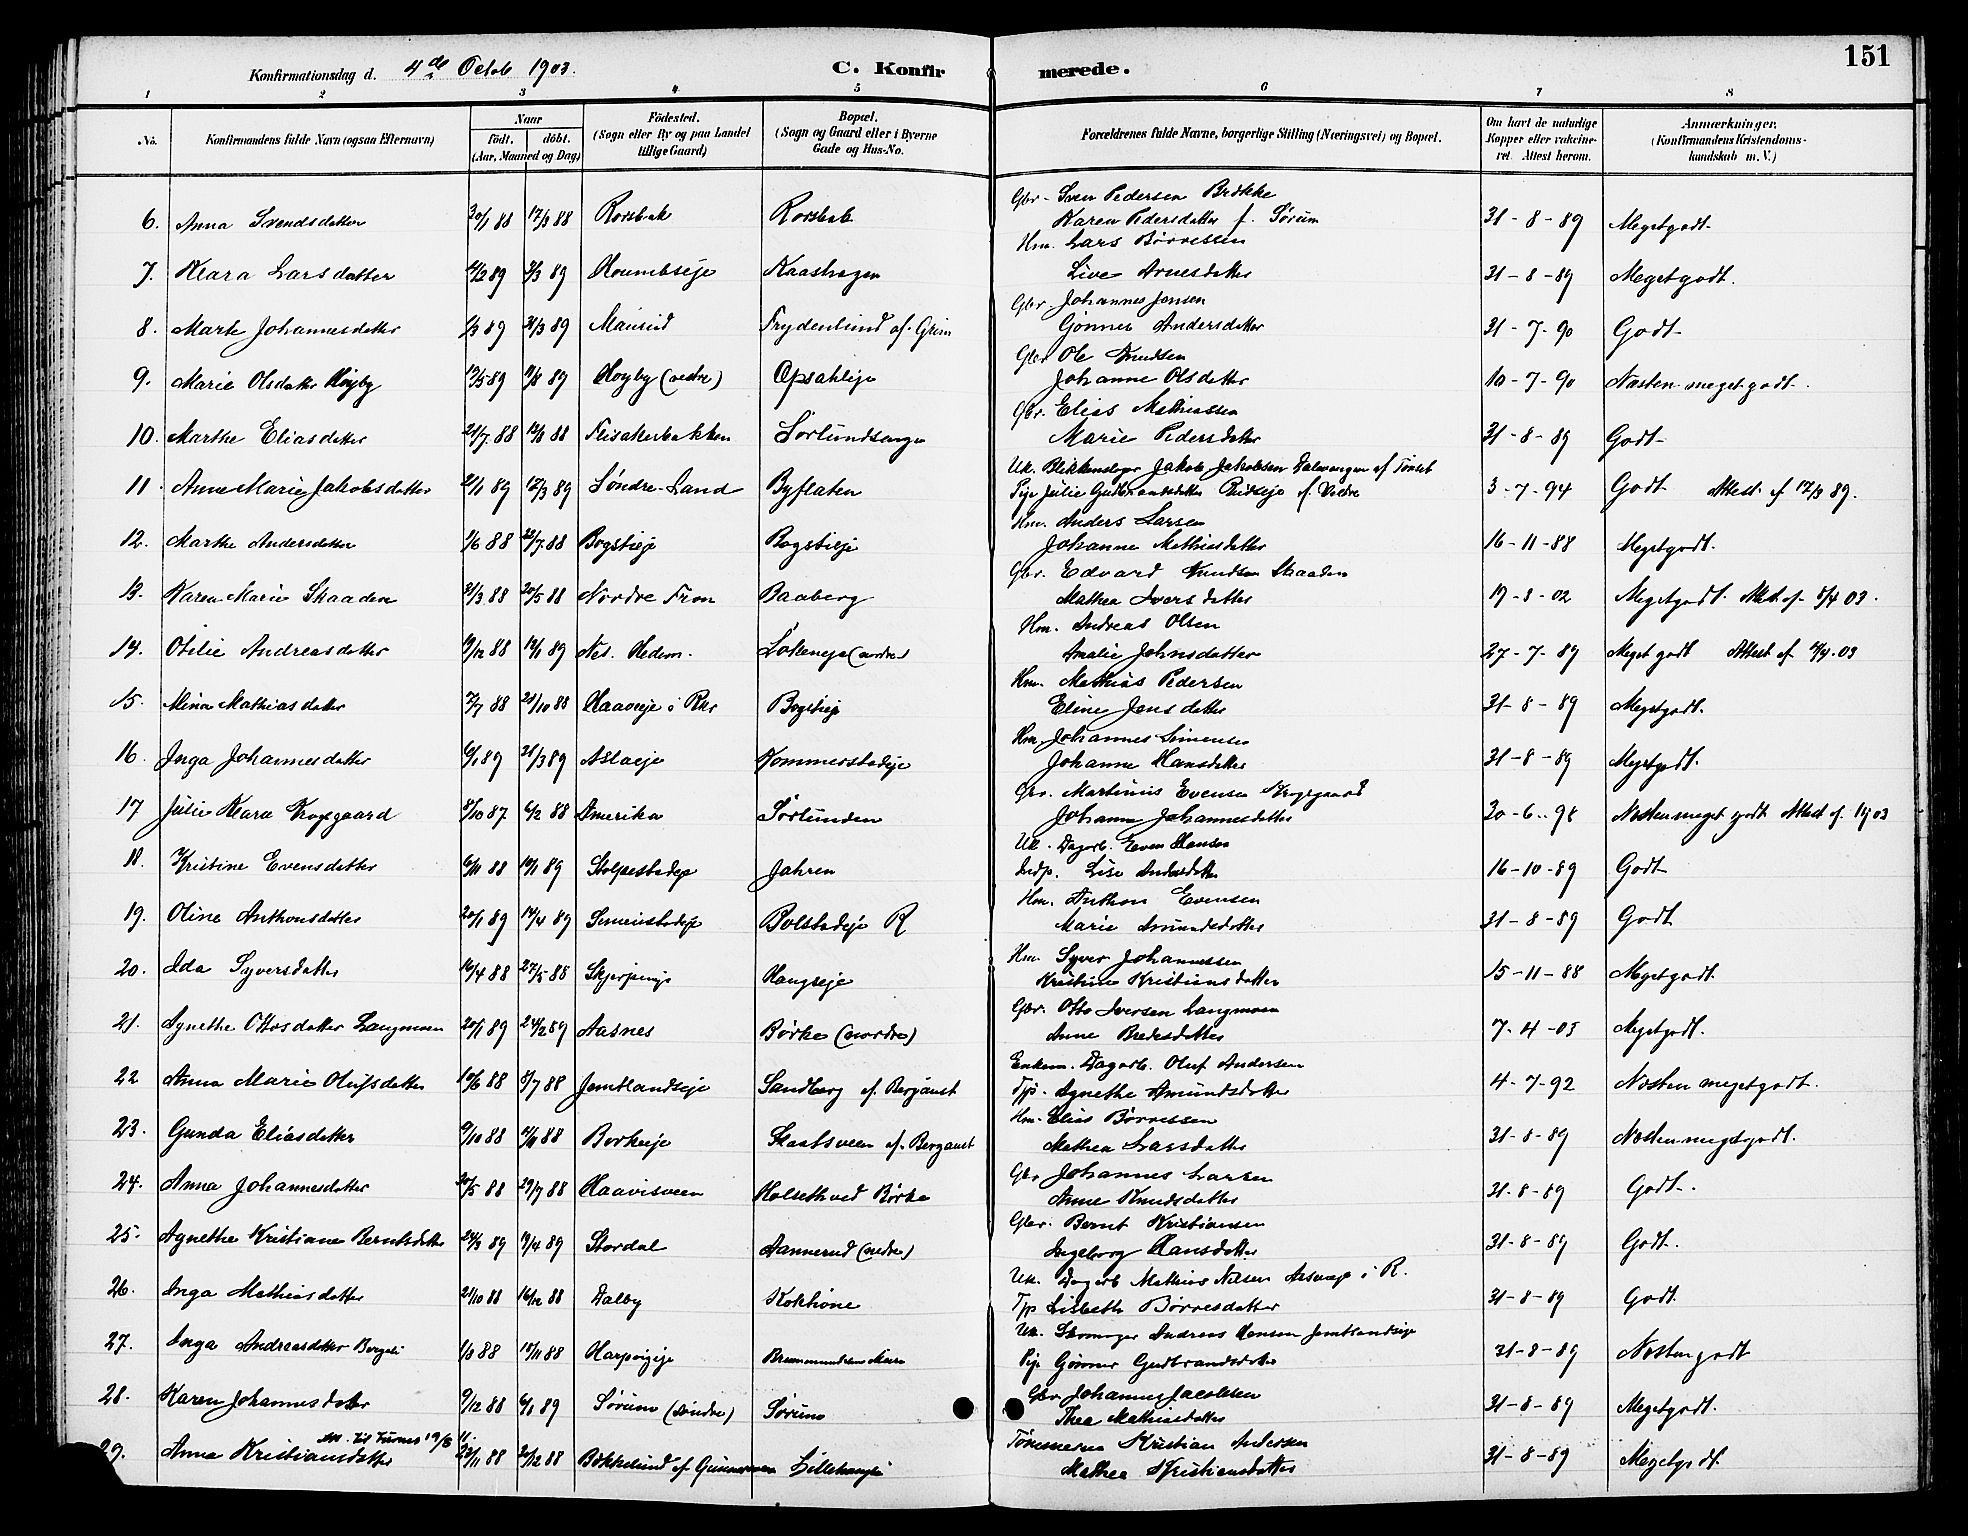 151
Konfirmationsdag d. 4de Octob 1903. C. Konfirmerede.
1 2 3 4 5 6 7 8
No. Konfirmandens fulde Navn (ogsaa Efternavn) Naar født. døbt. (Aar, Maaned og Dag) Fødested. (Sogn eller By og paa Landet tillige Gaard) Bopæl. (Sogn og Gaard eller i Byerne Gade og Hus-No. Forældrenes fulde Navne, borgerlige Stilling (Næringsvei) og Bopæl. Om havt de naturlige Kopper eller vakcineret. Attest herom. Anmærkninger. (Konfirmandens Kristendomskundskab m. V.)
Gbr. Sven Pedersen Brökke
6. Anna Svendsdatter 30/1 88 17/3 88 Rorsbak Rorsbak Karen Pedersdatter f. Sörum 31-8-89 Megetgodt.
Hm. Lars Börresen
7. Klara Larsdatter 89 /3 89 Kaashagen Live Arnesdatter 31-8-89 Megetgodt.
Gbr. Johannes Jensen
8. Marte Johannesdatter 89 /3 89 Frydenlund af Grim Gönner Andersdatter 31-7-90 Godt
Gbr. Ole Knudsen
9. Marie Olsdatter Höyby 89 89 Höyby (vestre) Opsahleje Johanne Olsdatter 10-7-90 Næsten meget godt.
Gbr. Elias Mathiassen
10. Marthe Eliasdatter 21/7 88 12/8 88 Flisakerbakken Sörlundsenga Marie Pedersdatter 31-8-89 Godt
Uk. Blikkenslager Jakob Jakobsen
11. Anne Marie Jakobsdatter 21/1 89 17/3 89 Söndre-Land Byflaten Pige Julie Gudbrandsdatter 3-7-94 Godt Attest af 17/3 89.
Hm. Anders Larsen
12. Marthe Andersdatter 1/6 88 22/7 88 Bogstieje Bogstieje Johanne Mathiasdatter 16-11-88 Megetgodt.
Gbr. Edvard Knudsen Skaaden
13. Karen Marie Skaaden 21/3 88 20/5 88 Nordre Fron Baaberg Mathea Iversdatter 19-8-02 Megetgodt. Att. af 03.
Hm. Andreas Olsen
14. Otilie Andreasdatter 19/12 88 13/1 89 Nes. Hedem. (nordre) Amalie Johnsdatter 27-7-89 Meget godt Attest af 03
Hm. Mathias Pedersen
15. Mina Mathiasdatter 7/7 88 21/10 88 Haaveje i Rkr Bogstieje Eline Jensdatter 31-8-89 Megetgodt.
Hm. Johannes Simensen
16. Inga Johannesdatter 6/1 89 21/3 89 Aslaeje Kommerstadeje Johanne Hansdatter 31-8-89 Megetgodt.
Gbr. Martinius Evensen Krogsgaard
17 Julie Klara Krogsgaard 8/10 87 6/2 88 Amerika Sörlunden Johanne Johannesdatter 30-6-98 Næsten meget godt Attest af 03
Uk. Dagarb. Even Hansen
18. Kristine Evensdatter 6/11 88 /1 89 Stolpestadeje Jahren Indp. Lise Andersdatter 16-10-89 Godt
Hm. Anthon Evensen
19. Oline Anthonsdatter 20/1 89 14/4 89 Simenstadeje Bolstadeje R Marie Amundsdatter 31-8-89 Godt
Hm Syver Johannessen
20. Ida Syversdatter 16/4 88 27/5 88 Skjerpingje Haugseje Kristine Kristiansdatter 15-11-88 Megetgodt.
Gbr. Otto Iversen Langmoen
21. Agnethe Ottosdatter Langmoen 20/1 89 24/2 89 Aasnes Börke (nordre) Anne Bredesdatter 7-4-03 Megetgodt.
Enkem. Dagarb. Oluf Andersen
22 Anna Marie Olufsdatter 10/6 88 8/7 88 Jemtlandseje Sandberg af Bergaust Tjp. Agnethe Amundsdatter 4-7-92 Næsten megetgodt.
Hm. Elias Börresen
23. Gunda Eliasdatter 9/10 88 88 Borkeeje Skaatsveen af Bergaust Mathea Larsdatter 31-8-89 Næsten megetgodt.
Gbr Johannes Larsen
24. Anna Johannesdatter /5 88 29/7 88 Haavisveen Holseth ved Börke Anne Knudsdatter 31-8-89 Godt.
Gbr. Bernt Kristiansen
25. Agnethe Kristiane Berntsdatter 24/3 89 19/4 89 Stordal Aannerud (nedre) Ingeborg Hansdatter 31-8-89 Godt.
Uk. Dagarb Mathias Nilsen i R.
26. Inga Mathiasdatter 21/10 88 16/12 88 Dalby Kokhöne Tjp Lisbeth Börresdatter 31-8-89 Godt
Uk. Skomager Andreas Hansen Jemtlandseje
27. Inga Andreasdatter Bergli 1/8 88 18/11 88 Harpvigeje Pige Gönner Gudbrandsdatter 31-8-89 Næsten godt
Gbr Johannes Jacobsen
28. Karen Johannesdatter 9/12 88 6/1 89 Sörum (söndre) Sörum Thea Mathiasdatter 31-8-89 Megetgodt.
Att. til Furnes 19/8 11.
Tömmerm Kristian Andersen
29. Anna Kristiansdatter 88 /12 88 Bækkelund af Gunnarsveen Lillehaugli Mathea Kristiansdatter 31-8-89 Megetgodt.